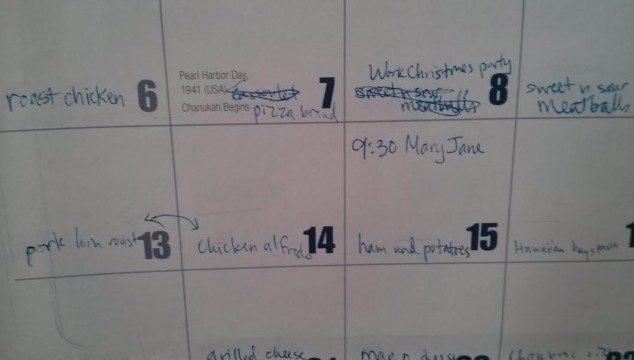 roast chicken 6
Pearl Harbor Day,
1941 (USA)
Chanukah Begins
7
pizza bread
Work Christmas party
sweet n sour
meatballs
8
sweet n sour
Meatballs
9:30 Mary Jane
pork loin roast 13
chicken alfredo 14
ham and potatoes 15
Hawaiian haystack
grilled cheese